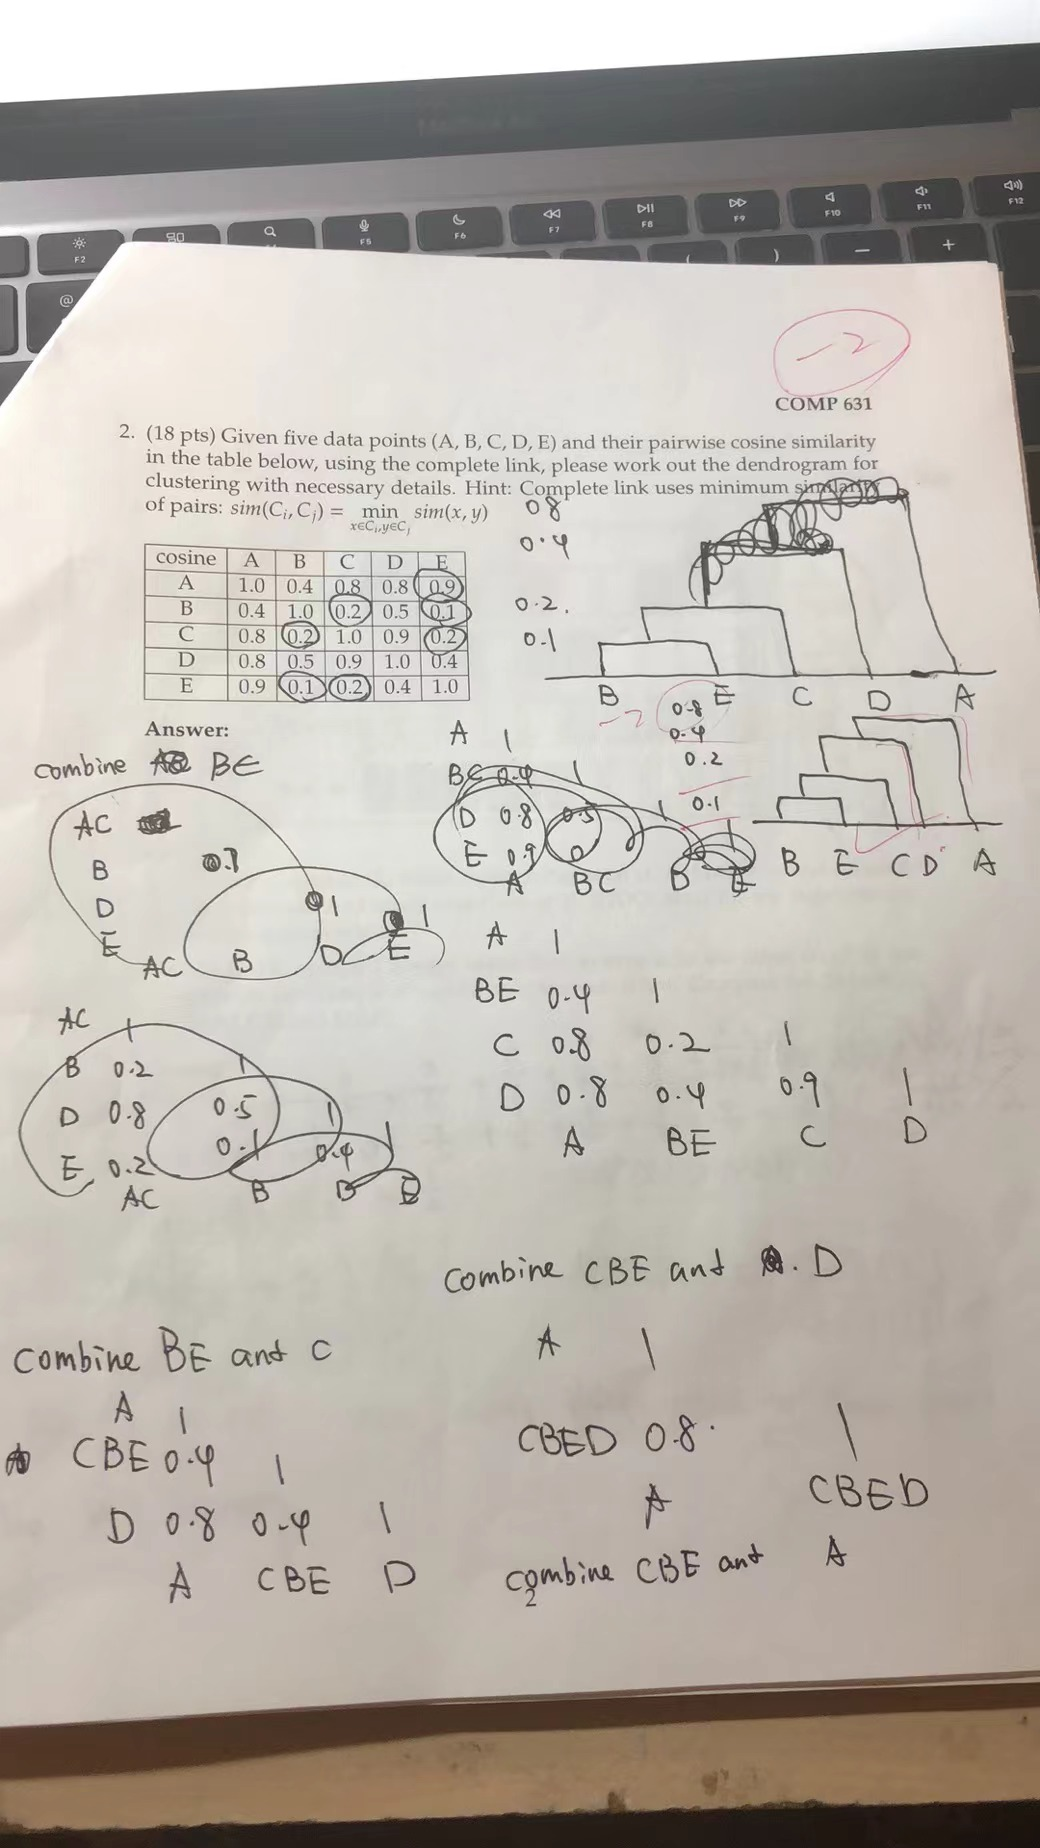 F2
F5
F6
F7
F8
F9
F10
F11
F12
@
)
—
+
-2
COMP 631
2. (18 pts) Given five data points (A, B, C, D, E) and their pairwise cosine similarity
in the table below, using the complete link, please work out the dendrogram for
clustering with necessary details. Hint: Complete link uses minimum similarity
of pairs: sim(Ci, Cj) = min sim(x, y)
x∈Ci,y∈Cj
0.8
0.4
0.2.
0.1
B E C D A
cosine A B C D E
A 1.0 0.4 0.8 0.8 0.9
B 0.4 1.0 0.2 0.5 0.1
C 0.8 0.2 1.0 0.9 0.2
D 0.8 0.5 0.9 1.0 0.4
E 0.9 0.1 0.2 0.4 1.0
-2
0.8
0.4
0.2
0.1
B E C D A
Answer:
combine BE
AC
B 0.1
D 1 1
E
AC B D E
A 1
BC 0.4 1
D 0.8 0.5 1
E 0.9 1
A BC B E
AC 1
B 0.2 1
D 0.8 0.5 1
E 0.2 0.1 0.4 1
AC B D E
A 1
BE 0.4 1
C 0.8 0.2 1
D 0.8 0.4 0.9 1
A BE C D
combine BE and C
A 1
CBE 0.4 1
D 0.8 0.4 1
A CBE D
combine CBE and D
A 1
CBED 0.8. 1
A CBED
combine CBE and A
2